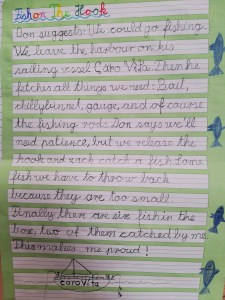 Fish on The Hook
Don suggests: We could go fishing.
We leave the harbour on his
sailing vessel Caro Vita. Then he
fetches all things we need: Bait,
chillybunnet, gauge, and of course
the fishing rods. Don says we'll
need patience, but we release the
hook and each catch a fish. Some
fish we have to throw back
because they are too small.
Finally there are six fish in the
box, two of them catched by me.
This makes me proud!
caro Vita